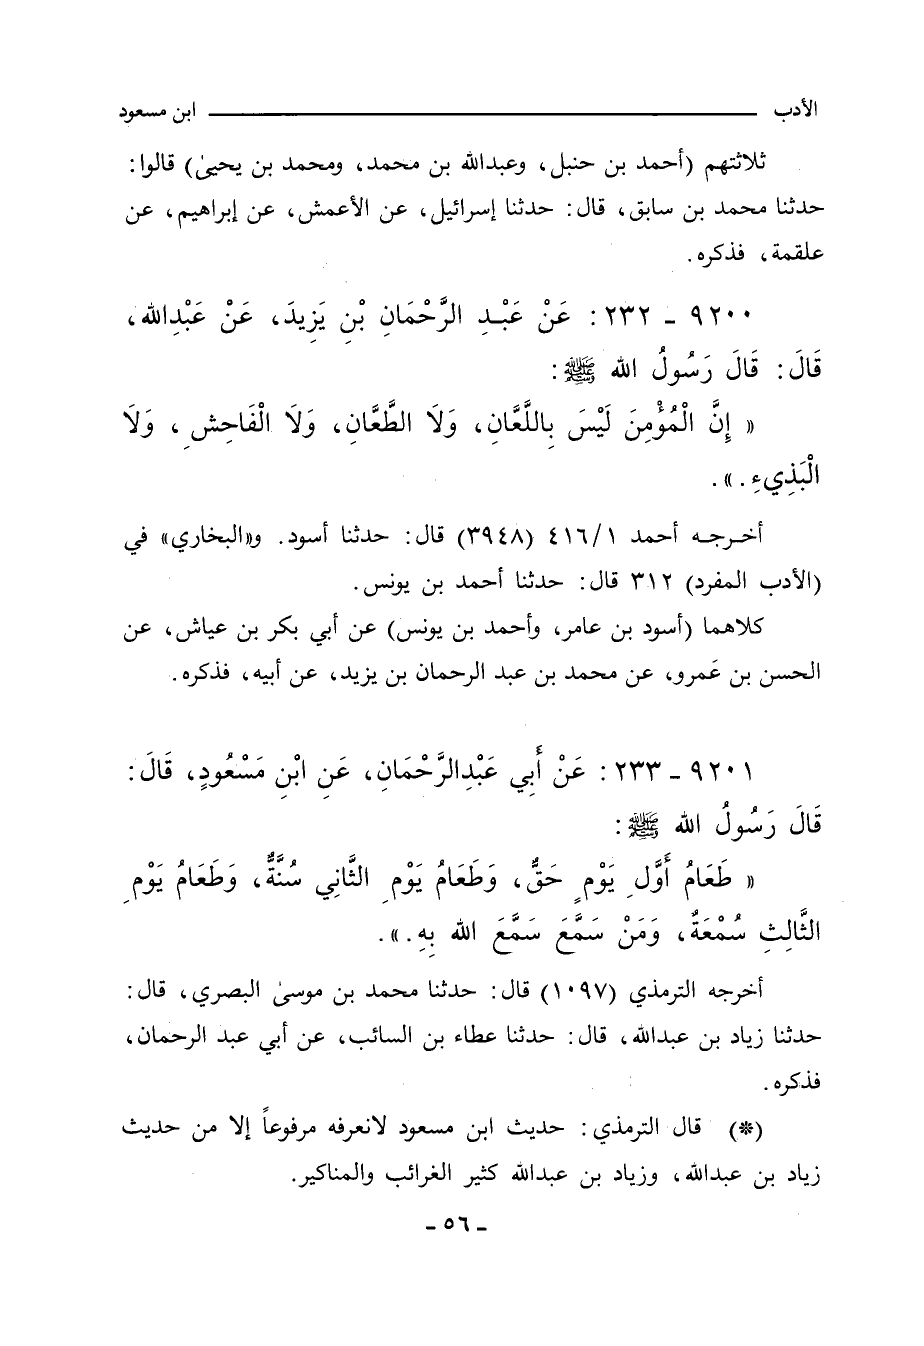 الأدب ــــــــــ ابن مسعود
ثلاثتهم (أحمد بن حنبل، وعبدالله بن محمد، ومحمد بن يحيىٰ) قالوا:
حدثنا محمد بن سابق، قال: حدثنا إسرائيل، عن الأعمش، عن إبراهيم، عن
علقمة، فذكره.
٩٢٠٠ ـ ٢٣٢: عَنْ عَبْـدِ الرَّحْمَانِ بْنِ يَزِيدَ، عَنْ عَبْدِالله،
قَالَ: قَالَ رَسُولُ الله ﷺ:
« إِنَّ الْمُؤْمِنَ لَيْسَ بِاللَّعَّانِ، وَلَا الطَّعَّانِ، وَلَا الْفَاحِشِ، وَلَا
الْبَذِيءِ.».
أخـرجـه أحمد ٤١٦/١ (٣٩٤٨) قال: حدثنا أسود. و«البخاري» في
(الأدب المفرد) ٣١٢ قال: حدثنا أحمد بن يونس.
كلاهما (أسود بن عامر، وأحمد بن يونس) عن أبي بكر بن عياش، عن
الحسن بن عَمرو، عن محمد بن عبد الرحمان بن يزيد، عن أبيه، فذكره.
٩٢٠١ ـ ٢٣٣: عَنْ أَبِي عَبْدِالرَّحْمَانِ، عَنِ ابْنِ مَسْعُودٍ، قَالَ:
قَالَ رَسُولُ الله ﷺ:
« طَعَامُ أَوَّلِ يَوْمٍ حَقٌّ، وَطَعَامُ يَوْمِ الثَّانِي سُنَّةٌ، وَطَعَامُ يَوْمِ
الثَّالِثِ سُمْعَةٌ، وَمَنْ سَمَّعَ سَمَّعَ الله بِهِ.».
أخرجه الترمذي (١٠٩٧) قال: حدثنا محمد بن موسىٰ البصري، قال:
حدثنا زياد بن عبدالله، قال: حدثنا عطاء بن السائب، عن أبي عبد الرحمان،
فذكره.
(*) قال الترمذي: حديث ابن مسعود لانعرفه مرفوعاً إلا من حديث
زياد بن عبدالله، وزياد بن عبدالله كثير الغرائب والمناكير.
ـ ٥٦ ـ